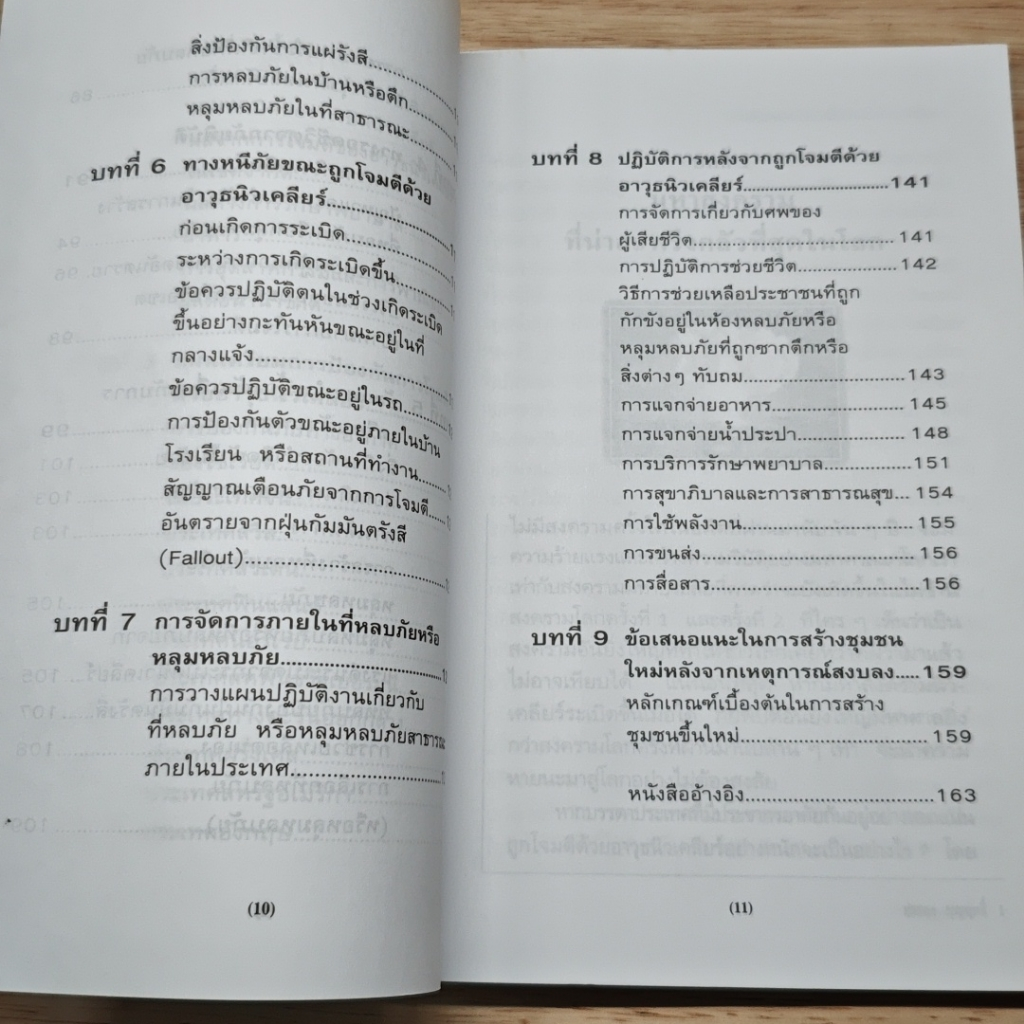 สิ่งป้องกันการแผ่รังสี
การหลบภัยในบ้านหรือตึก
หลุมหลบภัยในที่สาธารณะ
บทที่ 6 ทางหนีภัยขณะถูกโจมตีด้วย
อาวุธนิวเคลียร์
ก่อนเกิดการระเบิด
ระหว่างการเกิดระเบิดขึ้น
ข้อควรปฏิบัติตนในช่วงเกิดระเบิด
ขึ้นอย่างกะทันหันขณะอยู่ในที่
กลางแจ้ง
ข้อควรปฏิบัติขณะอยู่ในรถ
การป้องกันตัวขณะอยู่ภายในบ้าน
โรงเรียน หรือสถานที่ทำงาน
สัญญาณเตือนภัยจากการโจมตี
อันตรายจากฝุ่นกัมมันตรังสี
(Fallout)
บทที่ 7 การจัดการภายในที่หลบภัยหรือ
หลุมหลบภัย
การวางแผนปฏิบัติงานเกี่ยวกับ
ที่หลบภัย หรือหลุมหลบภัยสาธารณะ
ภายในประเทศ
(10)
บทที่ 8 ปฏิบัติการหลังจากถูกโจมตีด้วย
อาวุธนิวเคลียร์ 141
การจัดการเกี่ยวกับศพของ
ผู้เสียชีวิต 141
การปฏิบัติการช่วยชีวิต 142
วิธีการช่วยเหลือประชาชนที่ถูก
กักขังอยู่ในห้องหลบภัยหรือ
หลุมหลบภัยที่ถูกซากตึกหรือ
สิ่งต่างๆ ทับถม 143
การแจกจ่ายอาหาร 145
การแจกจ่ายน้ำประปา 148
การบริการรักษาพยาบาล 151
การสุขาภิบาลและการสาธารณสุข 154
การใช้พลังงาน 155
การขนส่ง 156
การสื่อสาร 156
บทที่ 9 ข้อเสนอแนะในการสร้างชุมชน
ใหม่หลังจากเหตุการณ์สงบลง 159
หลักเกณฑ์เบื้องต้นในการสร้าง
ชุมชนขึ้นใหม่ 159
หนังสืออ้างอิง 163
(11)